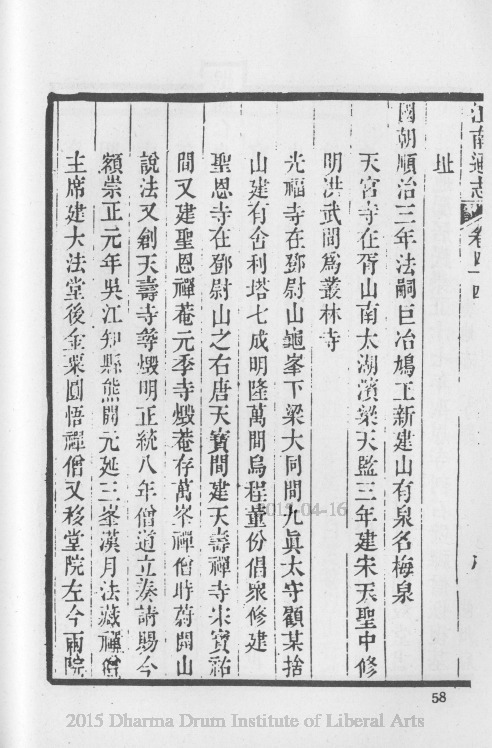 江南通志 卷四十四
址
國朝順治三年法嗣巨冶鳩工新建山有泉名梅泉
天宮寺在胥山南太湖濱梁天監三年建宋天聖中修
明洪武間爲叢林寺
光福寺在鄧尉山龜峯下梁大同間九眞太守顧某捨
山建有舍利塔七成明隆萬間烏程董份倡衆修建
聖恩寺在鄧尉山之右唐天寶間建天壽禪寺宋寶祐
間又建聖恩禪菴元季寺燬菴存萬峯禪僧時蔚開山
說法又創天壽寺尋燬明正統八年僧道立奏請賜今
額崇正元年吳江知縣熊開元延三峯漢月法藏禪僧
主席建大法堂後金粟圓悟禪僧又移堂院左今兩院
2015-04-16
58
2015 Dharma Drum Institute of Liberal Arts